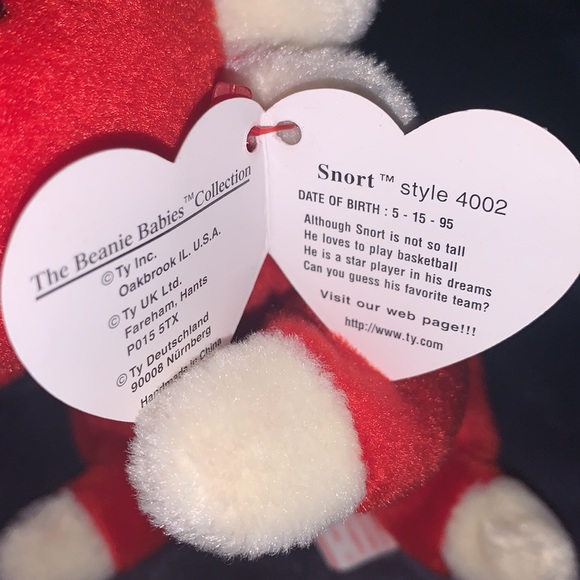 The Beanie Babies™ Collection
© Ty Inc.
Oakbrook IL. U.S.A.
© Ty UK Ltd.
Fareham, Hants
P015 5TX
© Ty Deutschland
90008 Nürnberg
Handmade in China
Snort™ style 4002
DATE OF BIRTH : 5 - 15 - 95
Although Snort is not so tall
He loves to play basketball
He is a star player in his dreams
Can you guess his favorite team?
Visit our web page!!!
http://www.ty.com